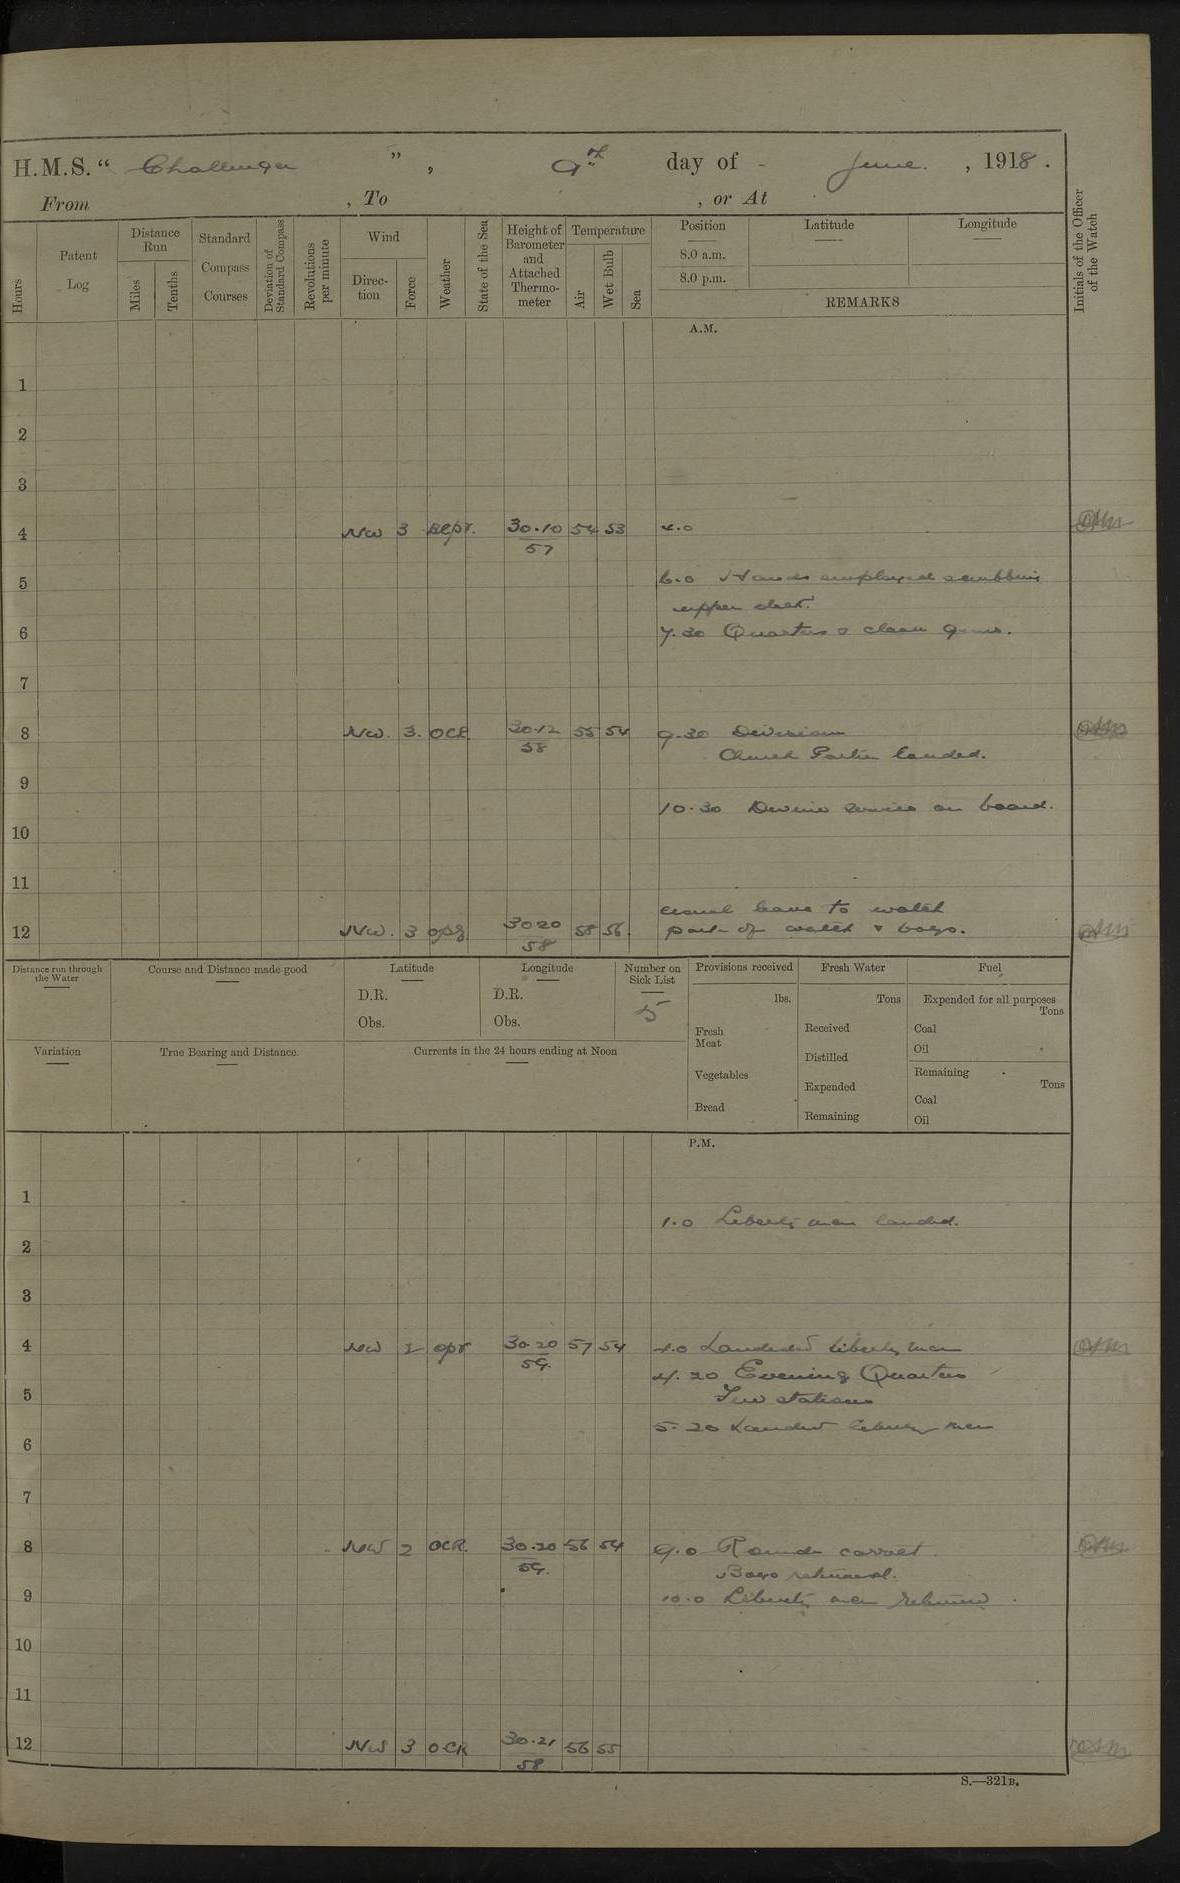 H.M.S. " Challenger " , 9th day of - June. , 1918 .
From , To , or At
Hours
Patent Log
Distance Run
Miles
Tenths
Standard Compass Courses
Deviation of Standard Compass
Revolutions per minute
Wind
Direction
Force
Weather
State of the Sea
Height of Barometer and Attached Thermometer
Temperature
Air
Wet Bulb
Sea
Position
8.0 a.m.
8.0 p.m.
Latitude
Longitude
REMARKS
Initials of the Officer of the Watch
A.M.
1
2
3
4 NW 3 30.10 54 53 4.0
57
5 6.0 Hands employed scrubbing
upper deck.
6 7.30 Quarters & clean guns.
7
8 NW. 3. OCR 30.12 55 54 9.30 Divisions
58 Church Parties landed.
9
10.30 Divine service on board.
10
11
usual leave to watch
12 NW. 3 30 20 58 56. part of watch & boys.
58
Distance run through the Water
Course and Distance made good
Latitude
D.R.
Obs.
Longitude
D.R.
Obs.
Number on Sick List
5
Provisions received
lbs.
Fresh Meat
Vegetables
Bread
Fresh Water
Tons
Received
Distilled
Expended
Remaining
Fuel
Expended for all purposes
Tons
Coal
Oil
Remaining
Tons
Coal
Oil
Variation
True Bearing and Distance.
Currents in the 24 hours ending at Noon
P.M.
1
1.0 Liberty men landed.
2
3
4 NW 2 opr 30.20 57 54 4.0 Landed liberty men
59. 4.20 Evening Quarters
5 Fire stations
5.20 Landed liberty men
6
7
8 NW 2 OCR. 30.20 56 54 9.0 Rounds correct.
59. Boys returned.
9 10.0 Liberty men returned.
10
11
12 NW 3 OCR 30.21 56 55
58
S.—321B.